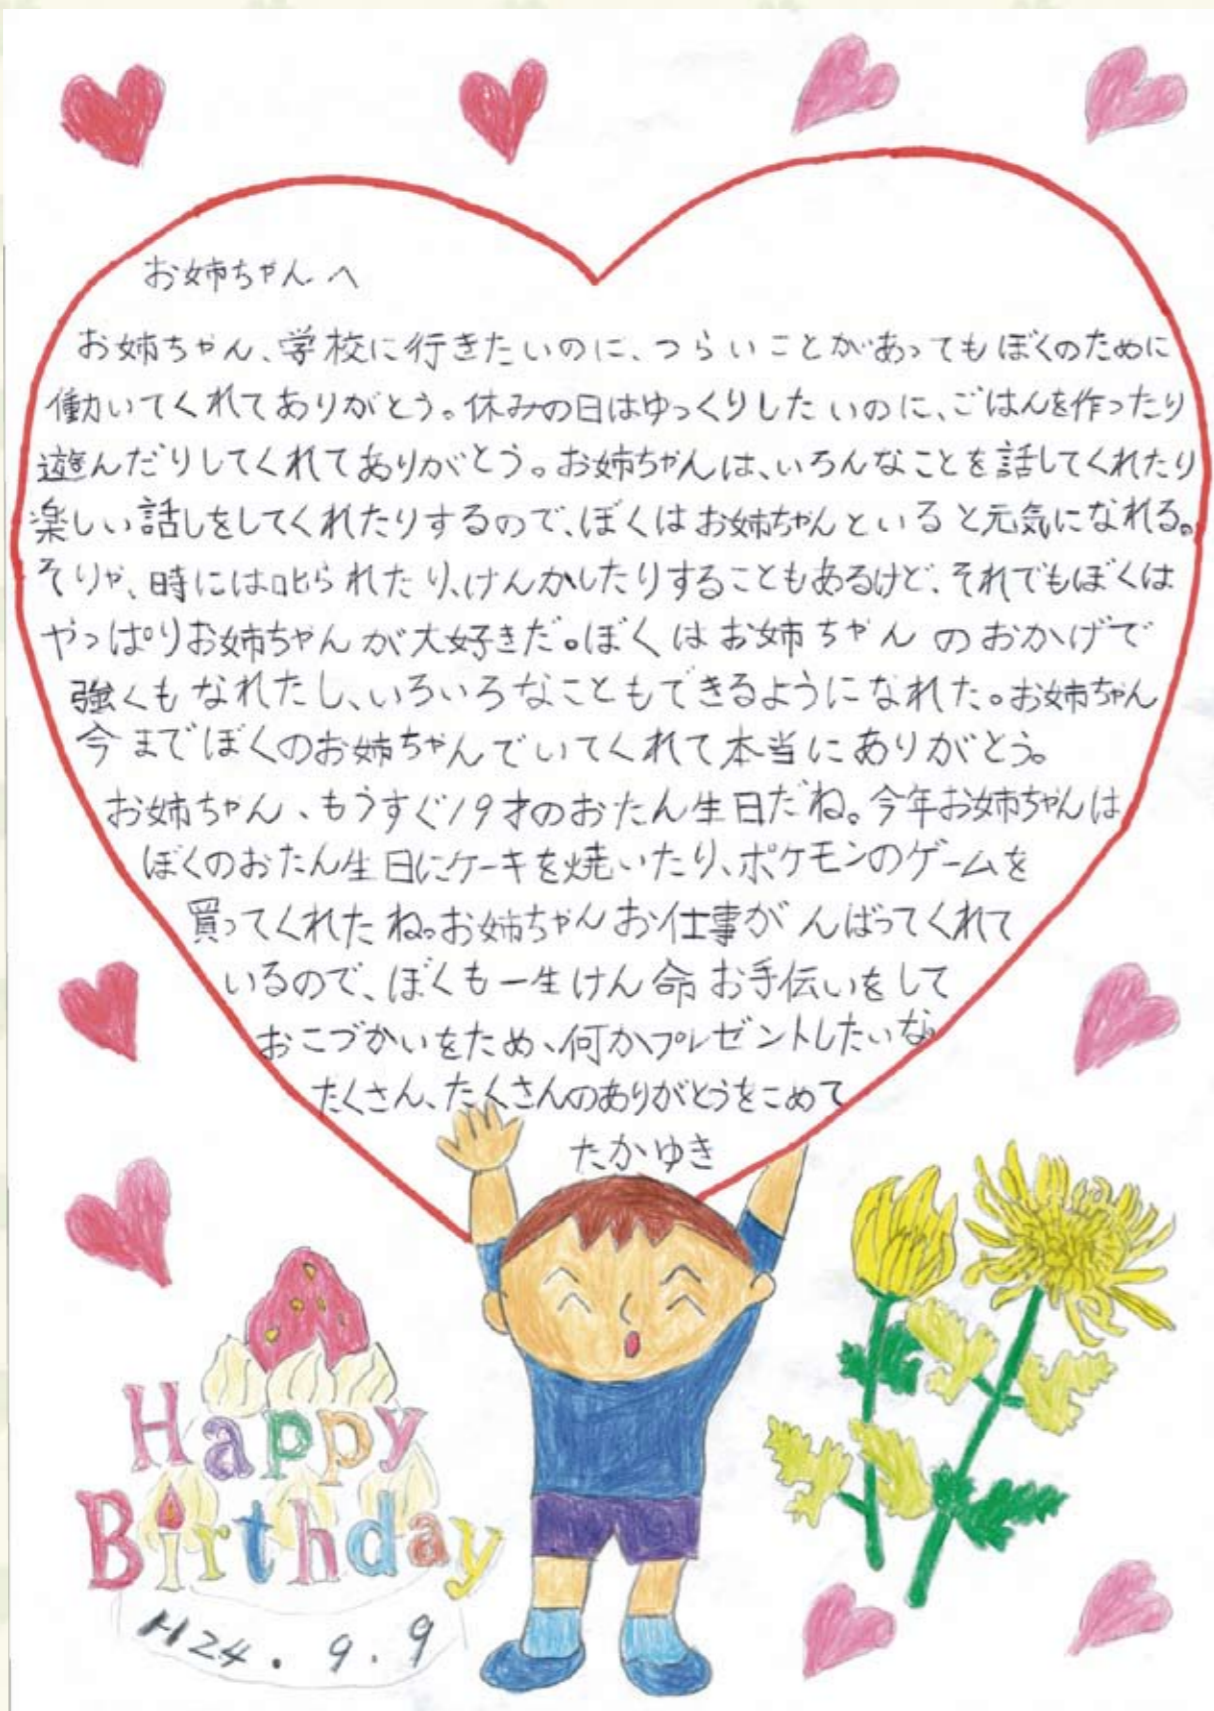 お姉ちゃんへ
お姉ちゃん、学校に行きたいのに、つらいことがあってもぼくのために
働いてくれてありがとう。休みの日はゆっくりしたいのに、ごはんを作ったり
遊んだりしてくれてありがとう。お姉ちゃんは、いろんなことを話してくれたり
楽しい話しをしてくれたりするので、ぼくはお姉ちゃんといると元気になれる。
そりゃ、時には叱られたり、けんかしたりすることもあるけど、それでもぼくは
やっぱりお姉ちゃんが大好きだ。ぼくはお姉ちゃんのおかげで
強くもなれたし、いろいろなこともできるようになれた。お姉ちゃん
今までぼくのお姉ちゃんでいてくれて本当にありがとう。
お姉ちゃん、もうすぐ19才のおたん生日だね。今年お姉ちゃんは
ぼくのおたん生日にケーキを焼いたり、ポケモンのゲームを
買ってくれたね。お姉ちゃんお仕事がんばってくれて
いるので、ぼくも一生けん命お手伝いをして
おこづかいをため、何かプレゼントしたいな。
たくさん、たくさんのありがとうをこめて
たかゆき
Happy
Birthday
H24.9.9